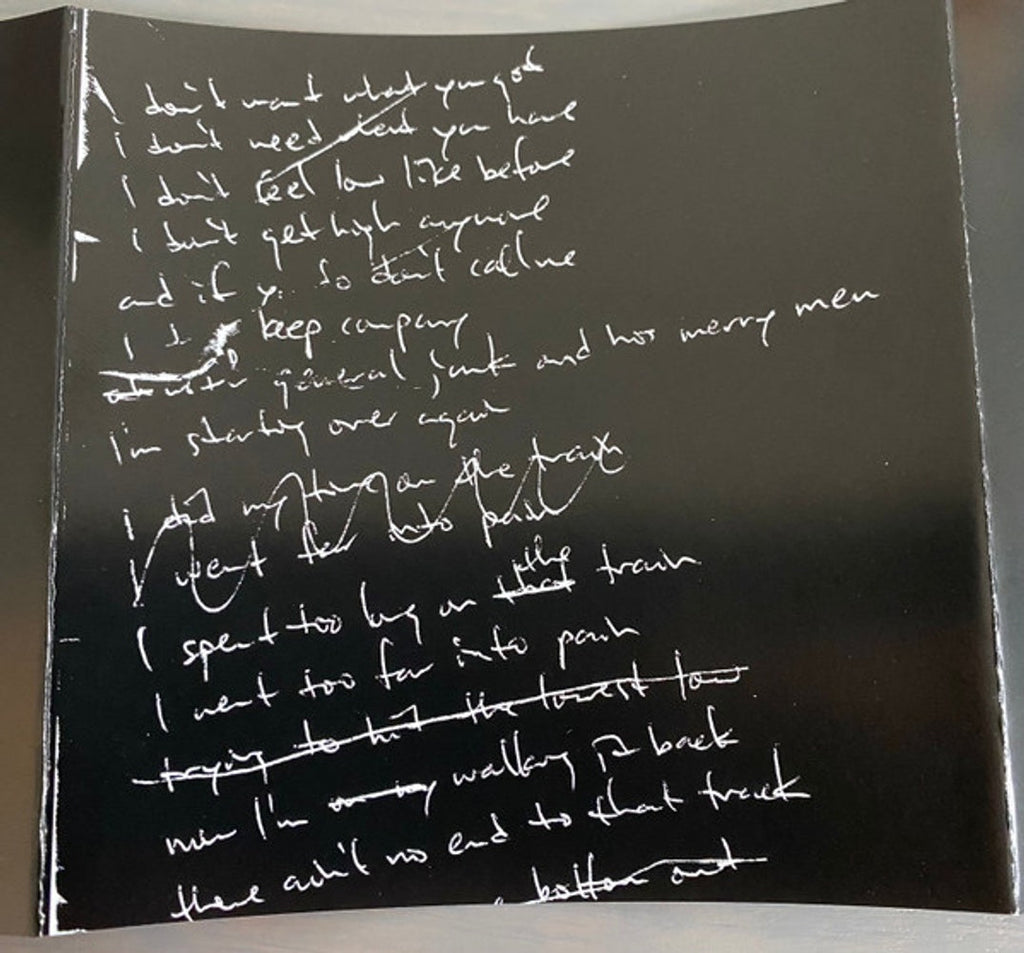 I don't want what you got
i don't need what you have
I don't feel low like before
i don't get high anymore
and if you do don't call me
I keep company
with general junk and his merry men
I'm starting over again
i did my time on the train
I went far into pain
the
I spent too long on that train
I went too far into pain
trying to hit the lowest low
now I'm on my walking it back
there ain't no end to that track
bottom out